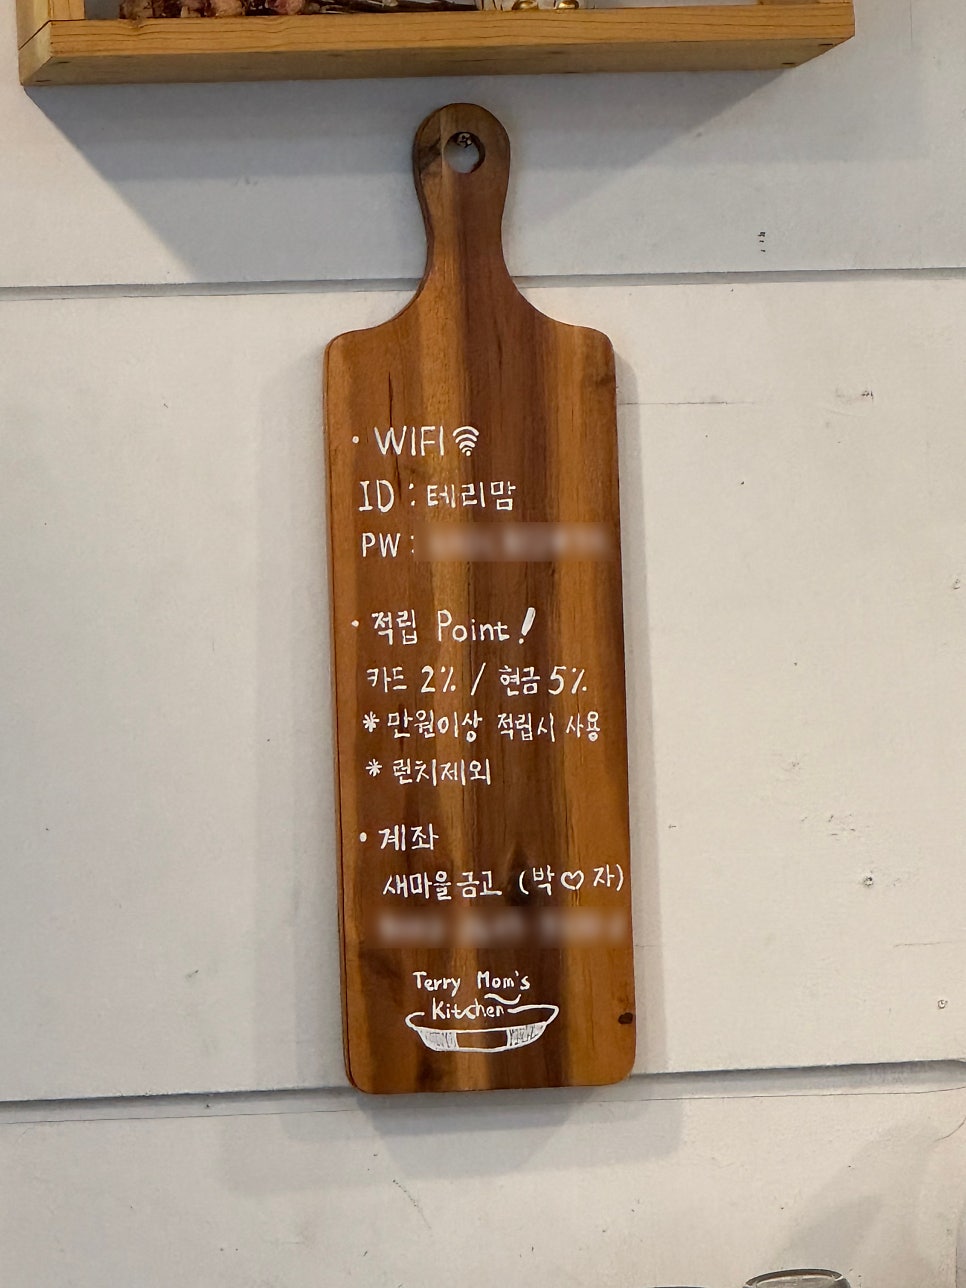 · WIFI
ID : 테리맘
PW :
· 적립 Point!
카드 2% / 현금 5%
* 만원이상 적립시 사용
* 런치제외
· 계좌
새마을금고 (박♡자)
Terry Mom's
Kitchen